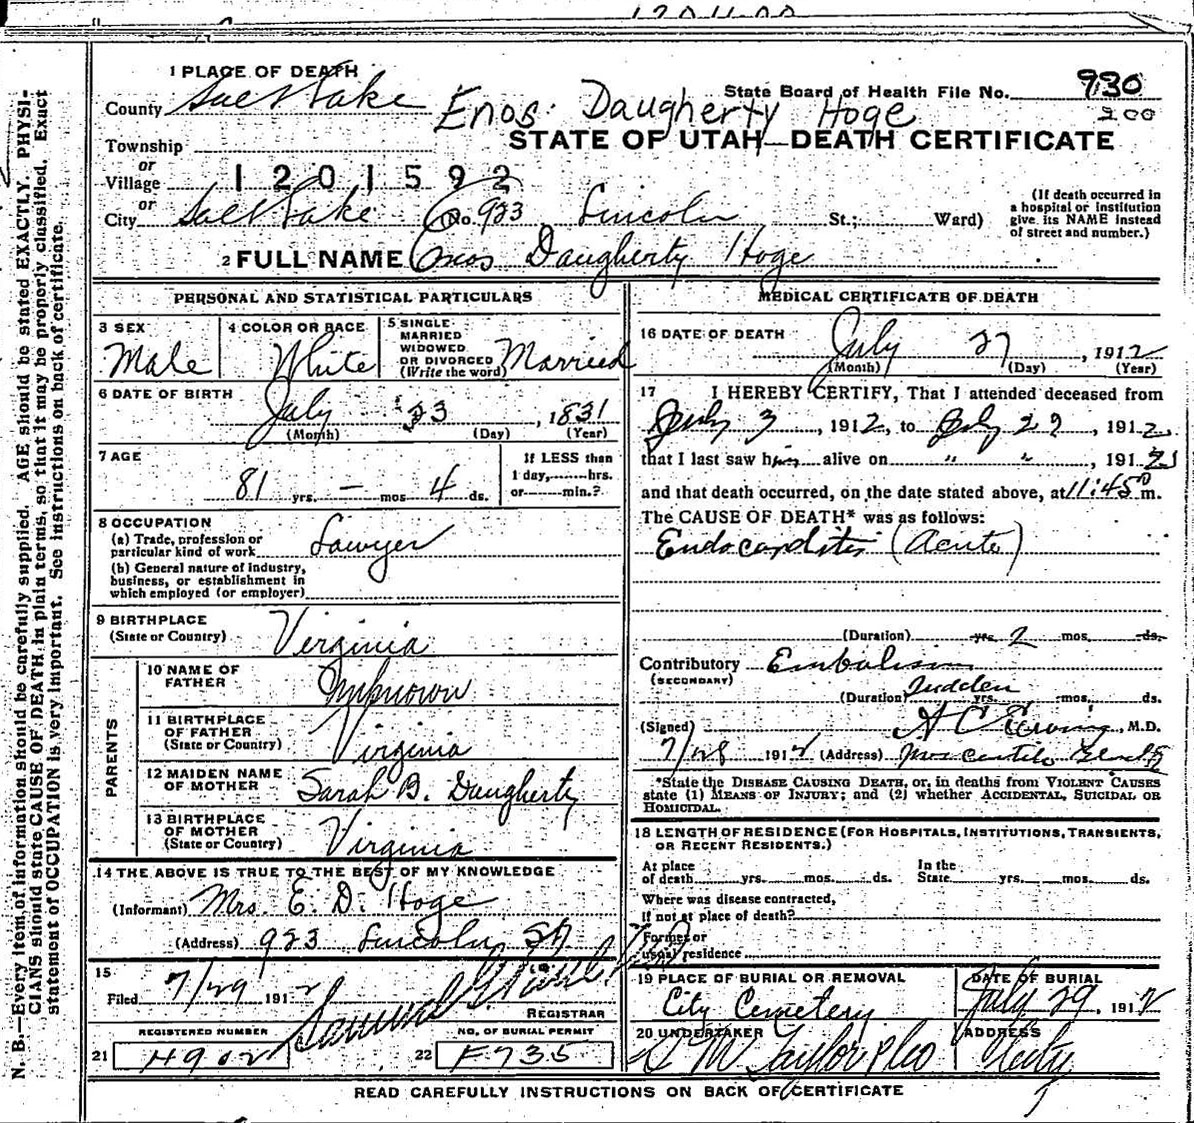 1 PLACE OF DEATH
County Salt Lake
State Board of Health File No. 930
200
Enos Daugherty Hoge
STATE OF UTAH—DEATH CERTIFICATE
Township
or
Village
1201592
or
City Salt Lake (No. 923 Lincoln St.; Ward)
(If death occurred in a hospital or institution give its NAME instead of street and number.)
2 FULL NAME Enos Daugherty Hoge
PERSONAL AND STATISTICAL PARTICULARS
3 SEX
Male
4 COLOR OR RACE
White
5 SINGLE MARRIED WIDOWED OR DIVORCED (Write the word) Married
6 DATE OF BIRTH
July 23, 1831
(Month) (Day) (Year)
7 AGE
81 yrs. — mos 4 ds.
If LESS than
1 day, hrs.
or min.?
8 OCCUPATION
(a) Trade, profession or
particular kind of work Lawyer
(b) General nature of industry,
business, or establishment in
which employed (or employer)
9 BIRTHPLACE
(State or Country) Virginia
PARENTS
10 NAME OF FATHER Unknown
11 BIRTHPLACE OF FATHER (State or Country) Virginia
12 MAIDEN NAME OF MOTHER Sarah B. Daugherty
13 BIRTHPLACE OF MOTHER (State or Country) Virginia
14 THE ABOVE IS TRUE TO THE BEST OF MY KNOWLEDGE
(Informant) Mrs. E. D. Hoge
(Address) 923 Lincoln St
15
Filed 7/29 1912
REGISTRAR
REGISTERED NUMBER
21 H902
NO. OF BURIAL PERMIT
22 F735
MEDICAL CERTIFICATE OF DEATH
16 DATE OF DEATH
July 27, 1912
(Month) (Day) (Year)
17 I HEREBY CERTIFY, That I attended deceased from
July 3, 1912, to July 27, 1912,
that I last saw him alive on " ", 1912,
and that death occurred, on the date stated above, at 11:45 P m.
The CAUSE OF DEATH* was as follows:
Endocarditis (Acute)
(Duration) yrs. 2 mos. ds.
Contributory Embolism
(SECONDARY)
Sudden
(Duration) yrs. mos. ds.
(Signed) M.D.
7/28 1912 (Address)
*State the DISEASE CAUSING DEATH, or, in deaths from VIOLENT CAUSES
state (1) MEANS OF INJURY; and (2) whether ACCIDENTAL, SUICIDAL OR
HOMICIDAL.
18 LENGTH OF RESIDENCE (FOR HOSPITALS, INSTITUTIONS, TRANSIENTS,
OR RECENT RESIDENTS.)
At place of death yrs. mos. ds. In the State yrs. mos. ds.
Where was disease contracted,
if not at place of death?
Former or
usual residence
19 PLACE OF BURIAL OR REMOVAL
City Cemetery
DATE OF BURIAL
July 29, 1912
20 UNDERTAKER
Taylor & Co
ADDRESS
City
READ CAREFULLY INSTRUCTIONS ON BACK OF CERTIFICATE
N. B.—Every item of information should be carefully supplied. AGE should be stated EXACTLY. PHYSI-
CIANS should state CAUSE OF DEATH in plain terms, so that it may be properly classified. Exact
statement of OCCUPATION is very important. See instructions on back of certificate.